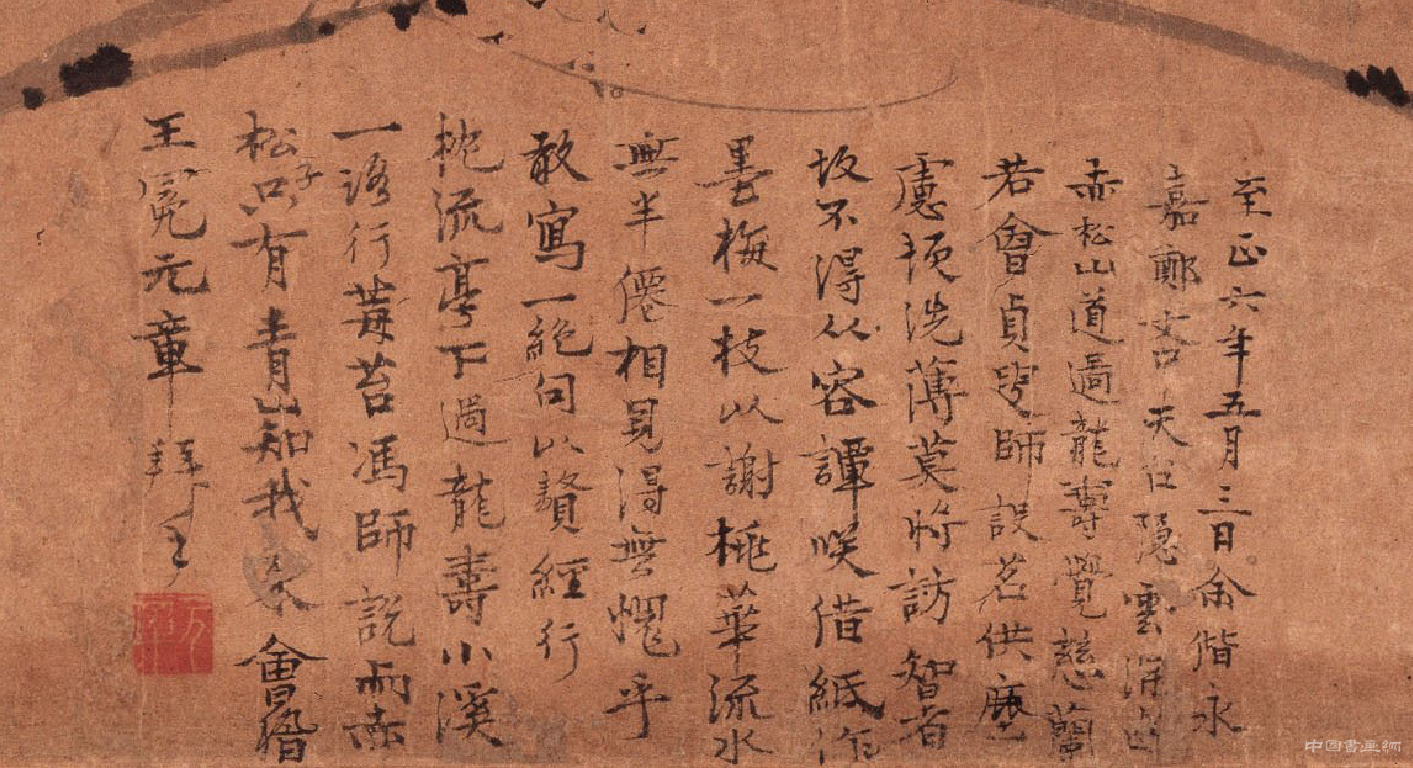 至正六年五月三日余偕永
嘉鄭文天台隱雲游
赤松山道過龍壽覺慈蘭
若會貞叟師設茗供塵
慮頓洗薄莫將訪智者
故不得从容譚咲借紙作
墨梅一枝以謝桃華流水
無半僊相見得無愧乎
敢寫一絕句以贅經行
枕流亭下過龍壽小溪
一路行莓苔馮師説與赤
松子只有青山知我來會稽
王冕元章拜
中国書画網